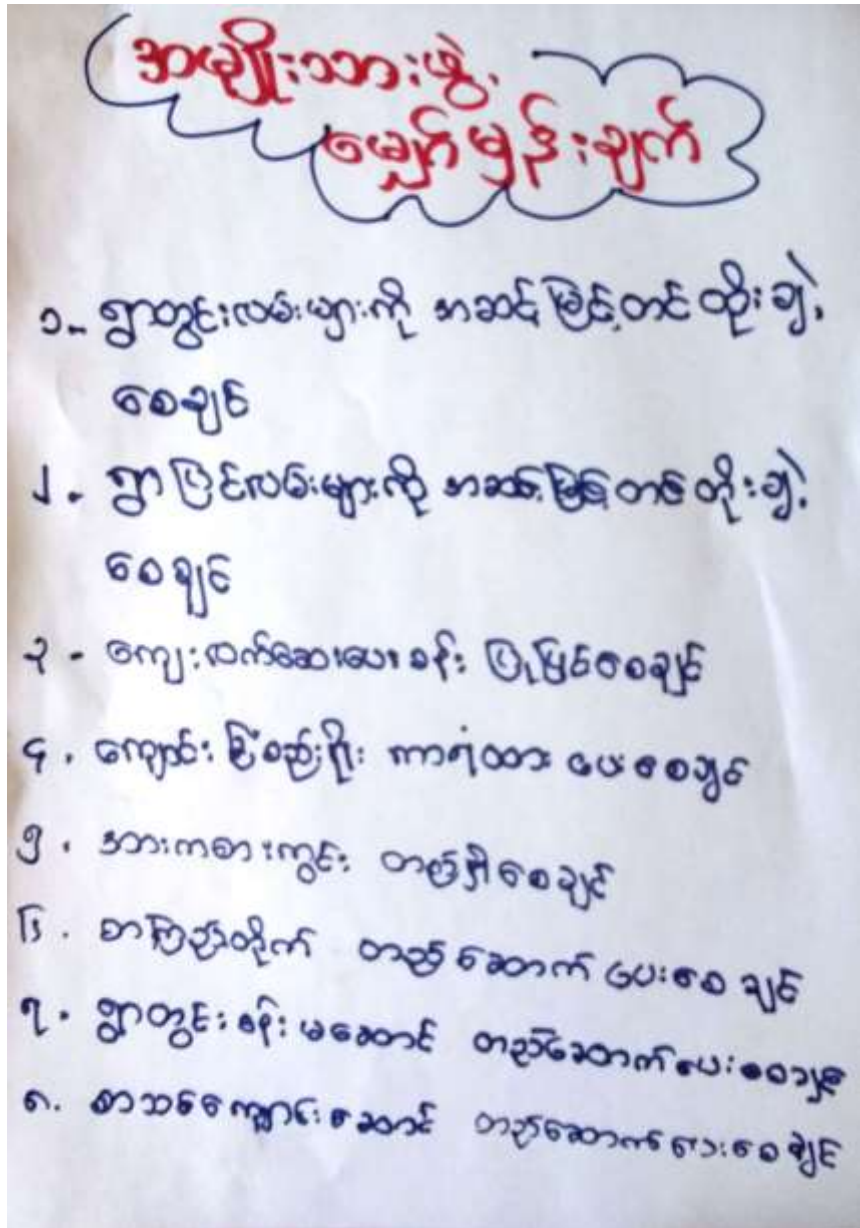 အမျိုးသားဖွဲ့
မျှော်မှန်းချက်
၁- ရွာတွင်းလမ်းများကို အဆင့်မြှင့်တင်ထိုးချဲ့
စေချင်
၂- ရွာပြင်လမ်းများကို အဆင့်မြှင့်တင်တိုးချဲ့
စေချင်
၃- ကျေးလက်ဆေးပေးခန်း ပြုပြင်စေချင်
၄. ကျောင်းခြံစည်းရိုး ကာရံထားပေးစေချင်
၅. အားကစားကွင်း တည်ရှိစေချင်
၆. စာကြည့်တိုက် တည်ဆောက်ပေးစေချင်
၇. ရွာတွင်းခန်းမဆောင် တည်ဆောက်ပေးစေချင်
၈. စာသင်ကျောင်းဆောင် တည်ဆောက်ပေးစေချင်